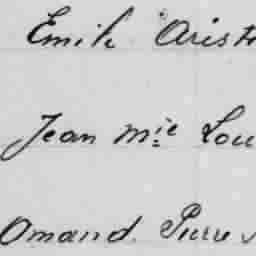 Emile Arist
Jean Mie Lou
Amand. Pierre